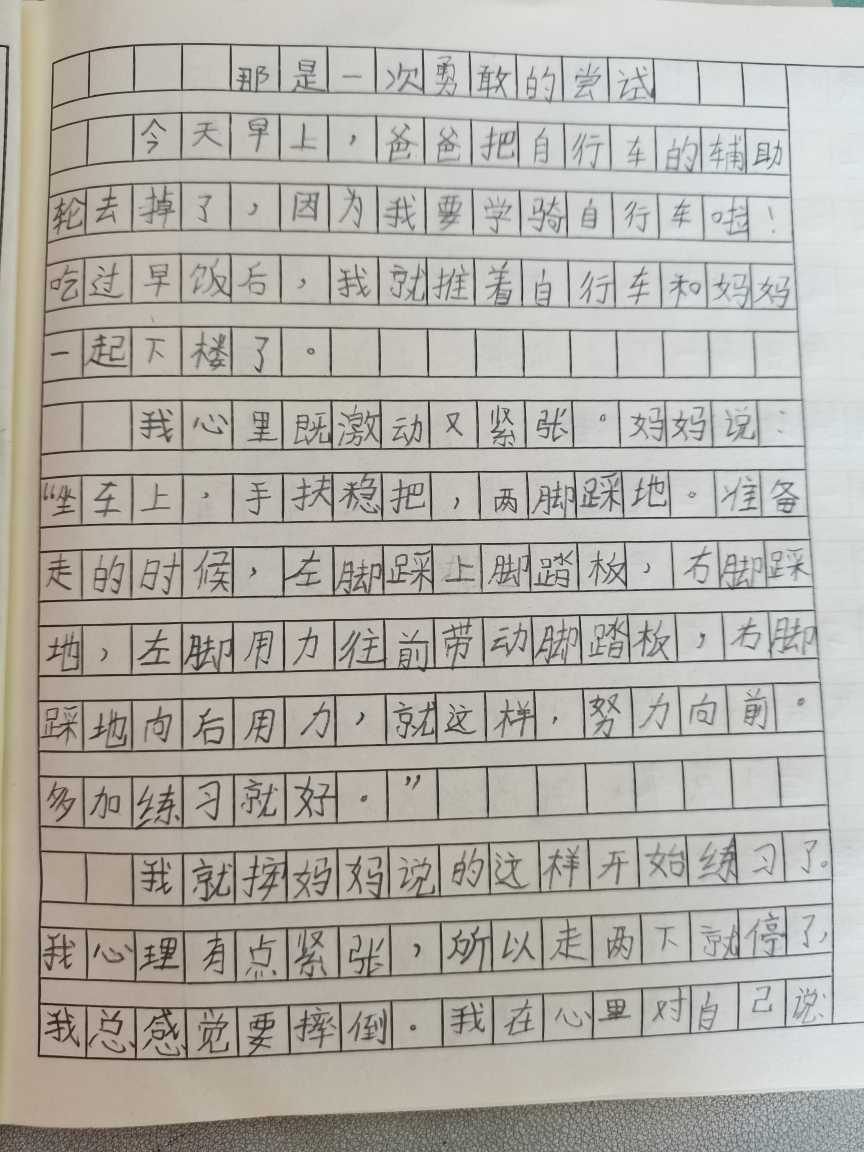 那是一次勇敢的尝试
今天早上，爸爸把自行车的辅助
轮去掉了，因为我要学骑自行车啦！
吃过早饭后，我就推着自行车和妈妈
一起下楼了。
我心里既激动又紧张。妈妈说：
“坐车上，手扶稳把，两脚踩地。准备
走的时候，左脚踩上脚踏板，右脚踩
地，左脚用力往前带动脚踏板，右脚
踩地向后用力，就这样，努力向前。
多加练习就好。”
我就按妈妈说的这样开始练习了。
我心理有点紧张，所以走两下就停了，
我总感觉要摔倒。我在心里对自己说：